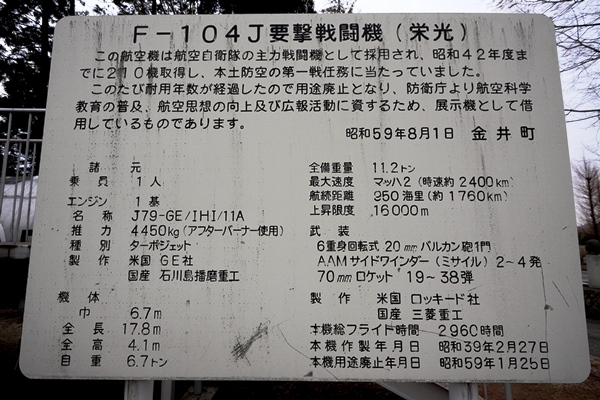 F-104J要撃戦闘機（栄光）
この航空機は航空自衛隊の主力戦闘機として採用され、昭和42年度ま
でに210機取得し、本土防空の第一戦任務に当たっていました。
このたび耐用年数が経過したので用途廃止となり、防衛庁より航空科学
教育の普及、航空思想の向上及び広報活動に資するため、展示機として借
用しているものであります。
昭和59年8月1日 金井町
諸元
乗員 1人
エンジン 1基
名称 J79-GE/IHI/11A
推力 4450kg(アフターバーナー使用)
種別 ターボジェット
製作 米国 GE社
国産 石川島播磨重工
機体
巾 6.7m
全長 17.8m
全高 4.1m
自重 6.7トン
全備重量 11.2トン
最大速度 マッハ2(時速約2400km)
航続距離 950海里(約1760km)
上昇限度 16000m
武装
6重身回転式20mmバルカン砲1門
AAMサイドワインダー(ミサイル)2~4発
70mmロケット 19~38弾
製作 米国 ロッキード社
国産 三菱重工
本機総フライト時間 2960時間
本機作製年月日 昭和39年2月27日
本機用途廃止年月日 昭和59年1月25日